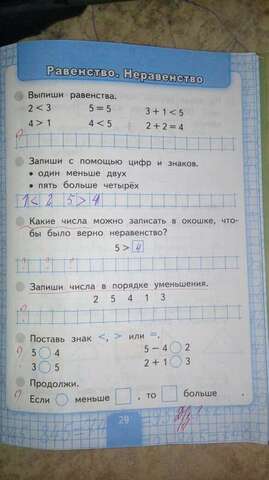 Равенство. Неравенство
Выпиши равенства.
2 < 3   5 = 5   3 + 1 < 5
4 > 1   4 < 5   2 + 2 = 4
Запиши с помощью цифр и знаков.
• один меньше двух
• пять больше четырёх
1 < 2 5 > 4
Какие числа можно записать в окошке, что-
бы было верно неравенство?
5 > 4
Запиши числа в порядке уменьшения.
2 5 4 1 3
Поставь знак <, > или =.
5 ○ 4   5 − 4 ○ 2
3 ○ 5   2 + 1 ○ 3
Продолжи.
Если ○ меньше □, то □ больше   .
29